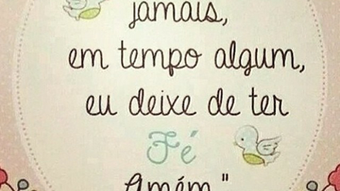 jamais,
em tempo algum,
eu deixe de ter
Fé
Amém."